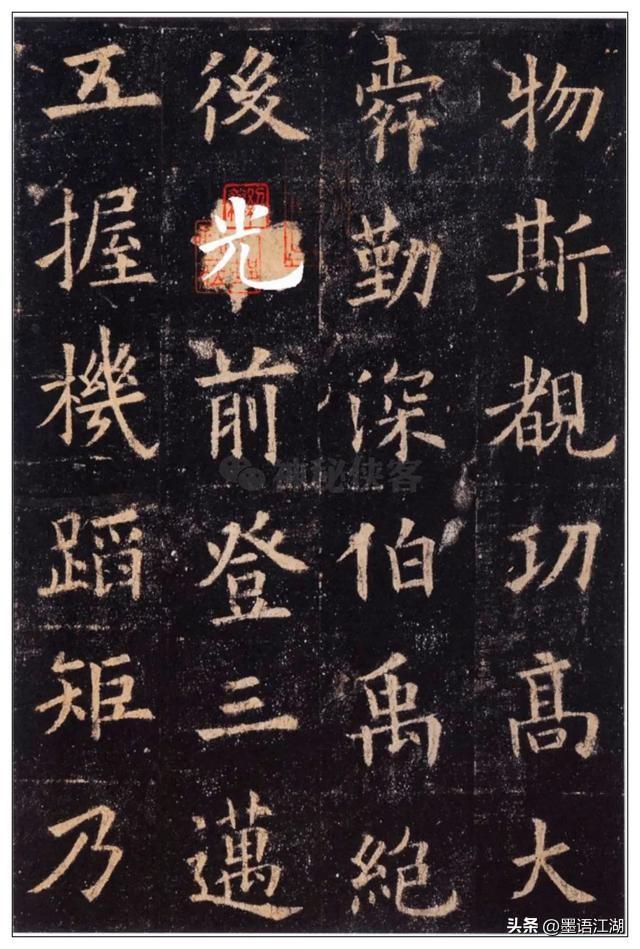 物斯覩功高大
舜勤深伯禹絶
後光前登三邁
五握機蹈矩乃
神秘侠客
头条 @墨语江湖